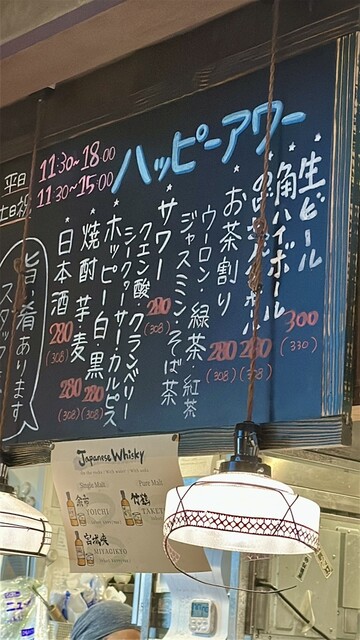 ハッピーアワー
平日 11:30~18:00
土日祝 11:30~15:00
生ビール 300
(330)
角ハイボール 280
(308)
280
(308)
お茶割り
ウーロン・緑茶・紅茶
ジャスミン・そば茶
サワー 280
(308)
クエン酸 クランベリー
シークァーサー カルピス
ホッピー白・黒 280
(308)
焼酎 芋・麦 280
(308)
日本酒 280
(308)
旨い肴あります
スタッフ
Japanese Whisky
Single Malt
Pure Malt
余市
YOICHI
竹鶴
TAKET
宮城峡
MIYAGIKYO